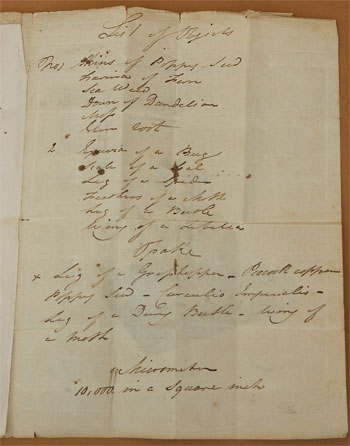 List of Objects
No 1 Skins of Poppy Seed
Farina of Fern
Sea Weed
Down of Dandelion
Moss
Root
2 Exuvia of a Bug
Scale of a
Leg of a Spider
Feathers of a Moth
Leg of a Beetle
Wing of a Libella
Opake
x Leg of a Grasshopper – Peacock copper
Poppy Seed – Curculio Imperialis –
Leg of a Diving Beetle – Wing of
a Moth
Micrometer
10,000 in a Square inch